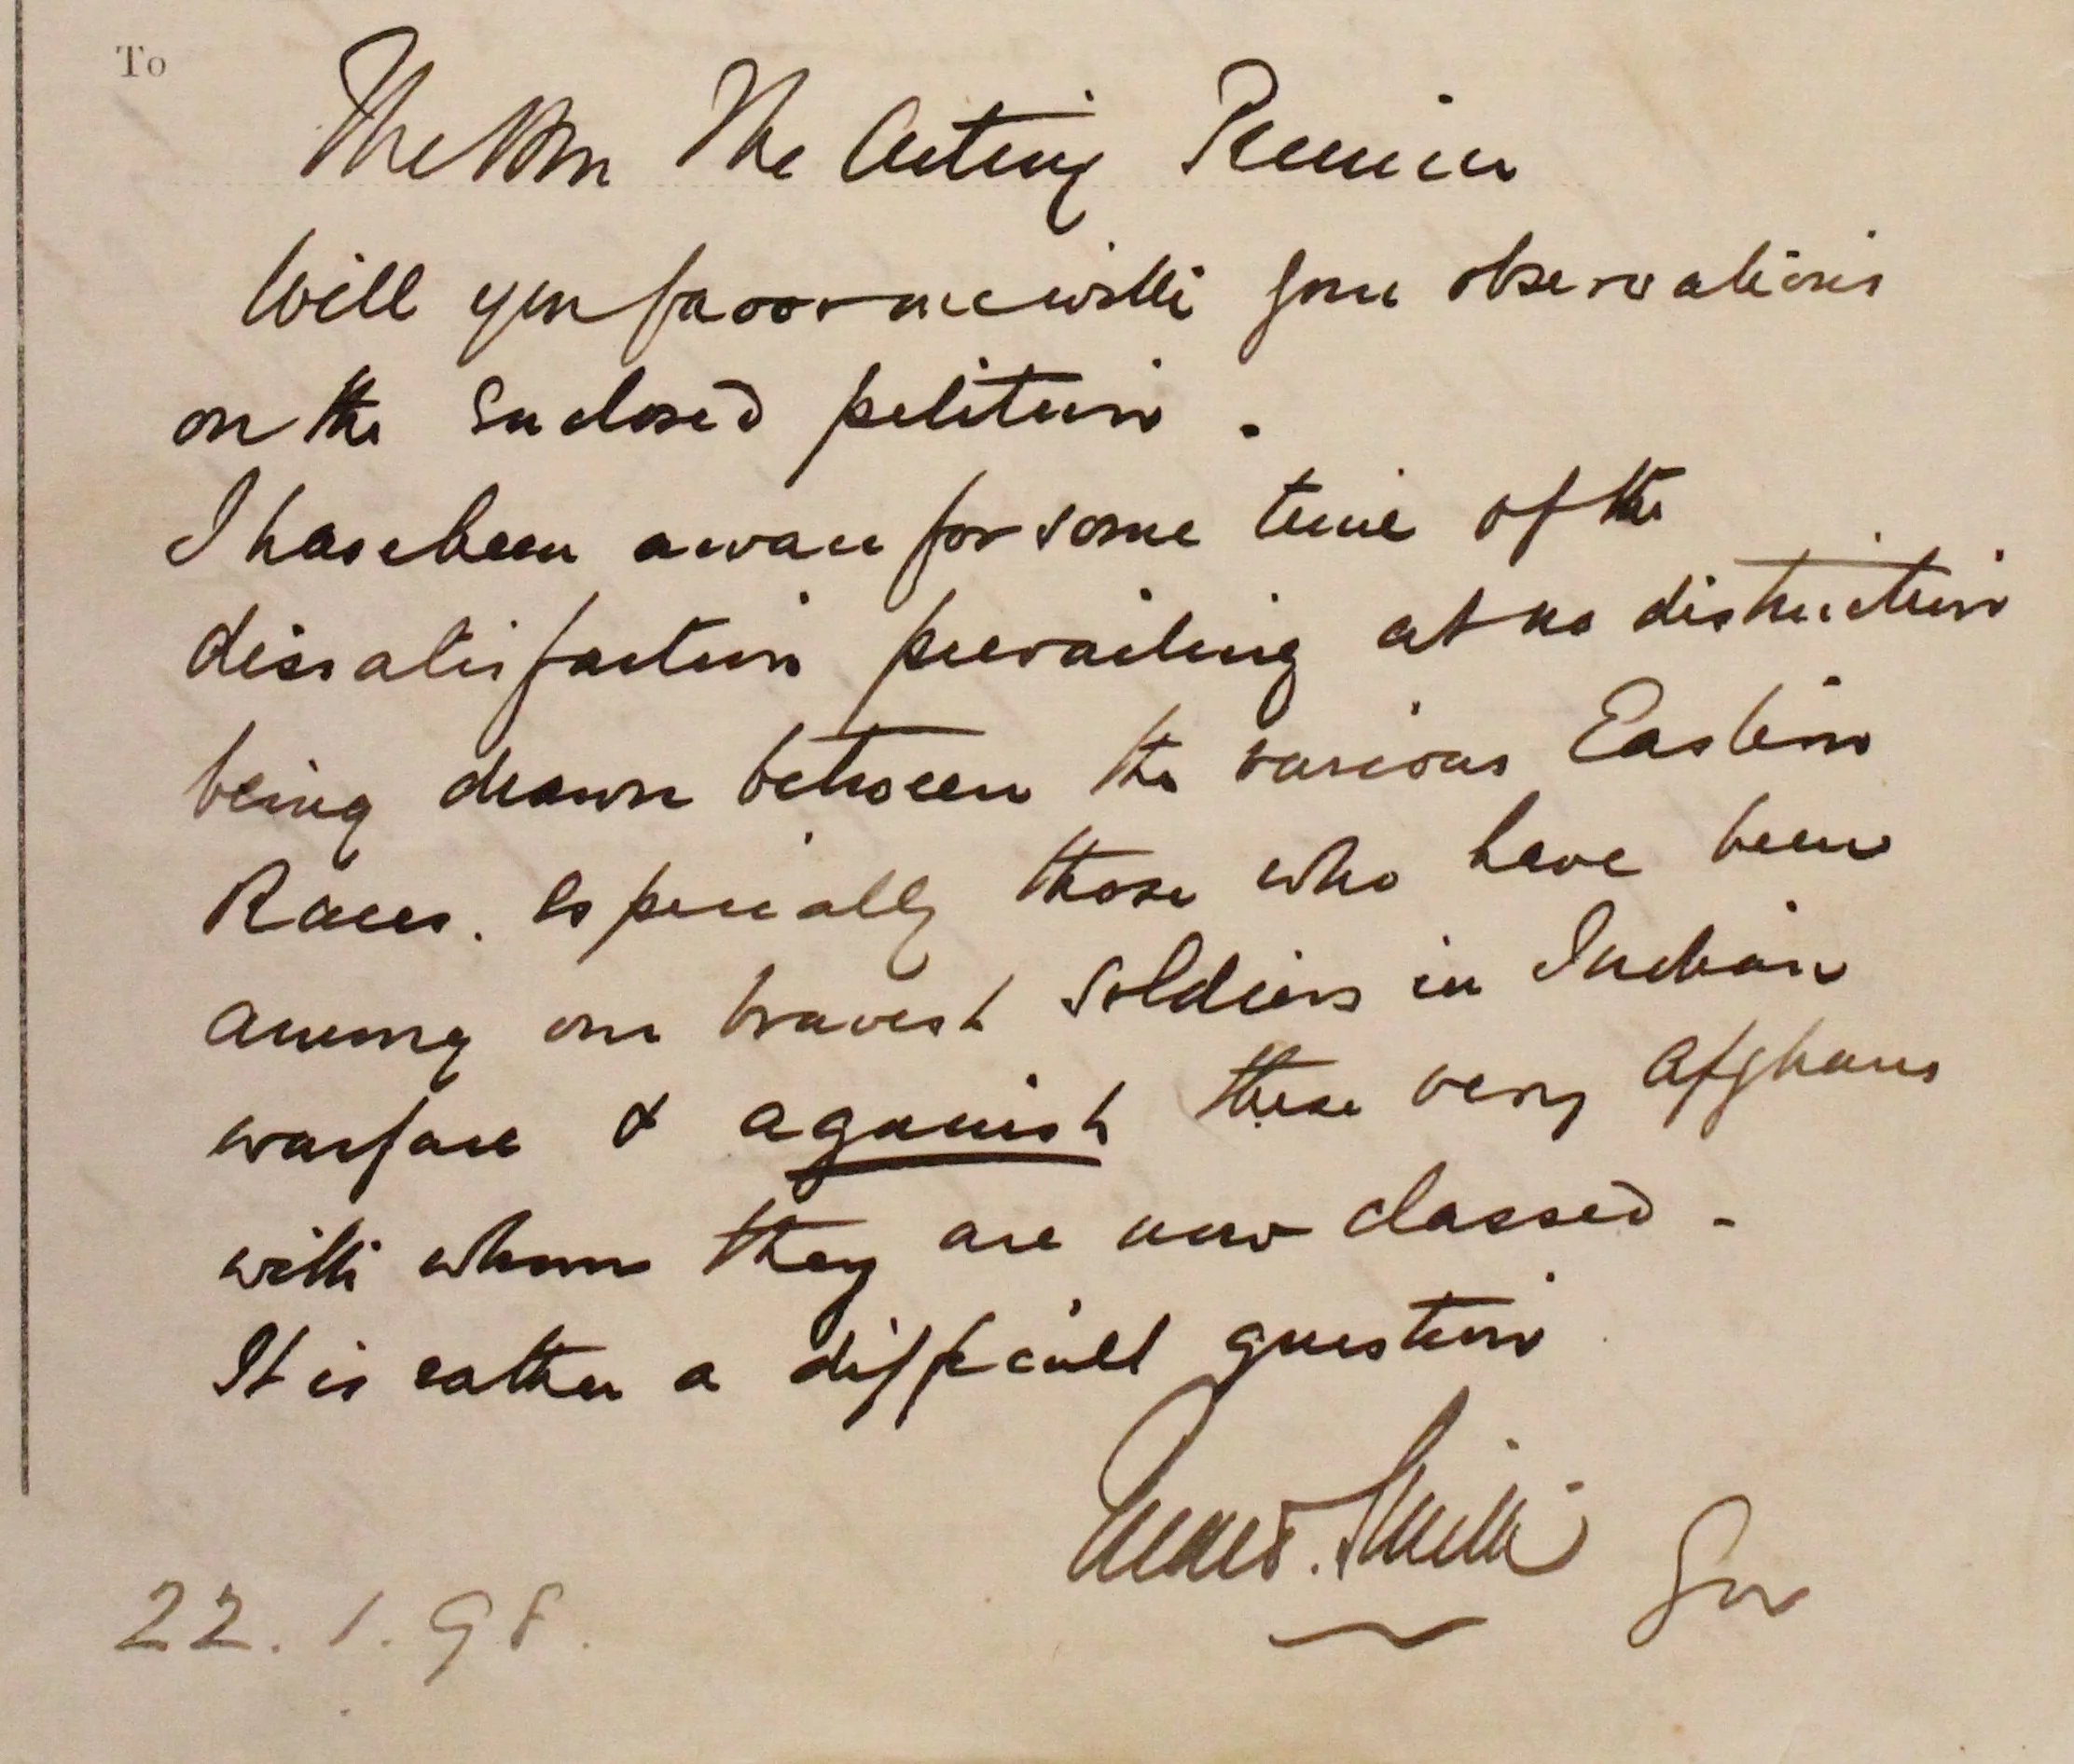 To
The Hon The Acting Premier
Will you favor me with your observations
on the enclosed petition.
I have been aware for some time of the
dissatisfaction prevailing at no distinction
being drawn between the various Eastern
Races. especially those who have been
among our bravest soldiers in Indian
warfare & against these very Afghans
with whom they are now classed -
It is rather a difficult question
Gerard Smith Gov
22.1.98.